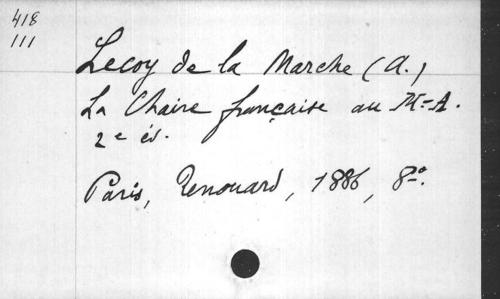 418
111
Lecoy de la Marche (A.)
La Chaire française au M-A.
2e éd.
Paris, Renouard, 1886, 8º.